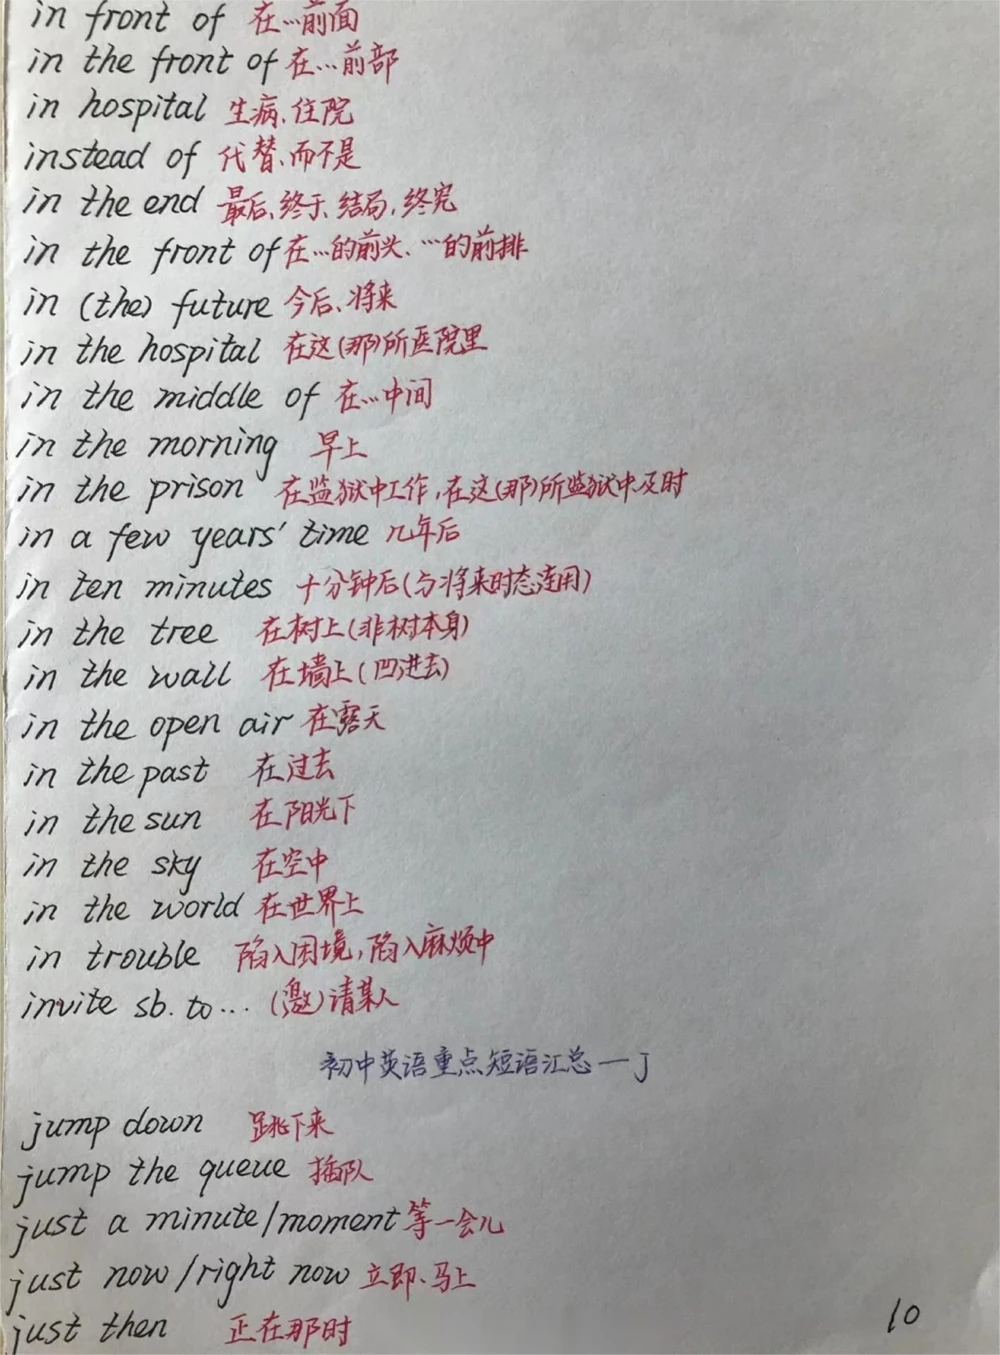 in front of 在…前面
in the front of 在…前部
in hospital 生病、住院
instead of 代替、而不是
in the end 最后、终于、结局、终究
in the front of 在…的前头、…的前排
in (the) future 今后、将来
in the hospital 在这(那)所医院里
in the middle of 在…中间
in the morning 早上
in the prison 在监狱中工作,在这(那)所监狱中及时
in a few years' time 几年后
in ten minutes 十分钟后(与将来时态连用)
in the tree 在树上(非树本身)
in the wall 在墙上(凹进去)
in the open air 在露天
in the past 在过去
in the sun 在阳光下
in the sky 在空中
in the world 在世界上
in trouble 陷入困境,陷入麻烦中
invite sb. to… (邀)请某人
初中英语重点短语汇总—J
jump down 跳下来
jump the queue 插队
just a minute/moment 等一会儿
just now/right now 立即、马上
just then 正在那时
10